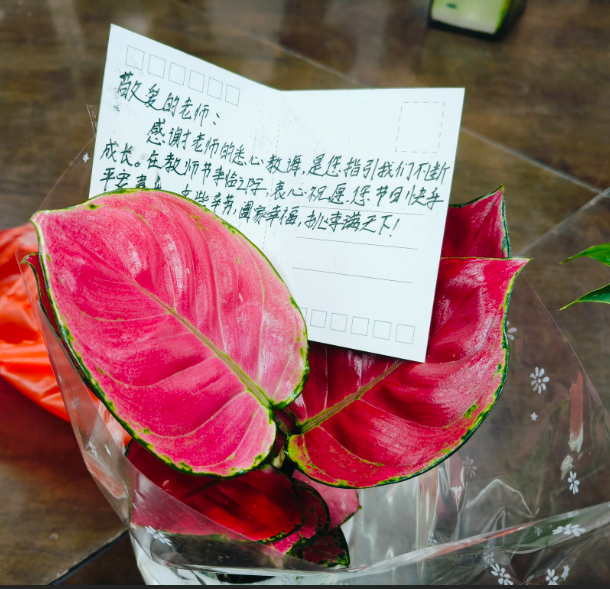 敬爱的老师：
感谢老师的悉心教诲，是您指引我们不断
成长。在教师节来临之际，衷心祝愿您节日快乐
平安 节，阖家幸福，桃李满天下！